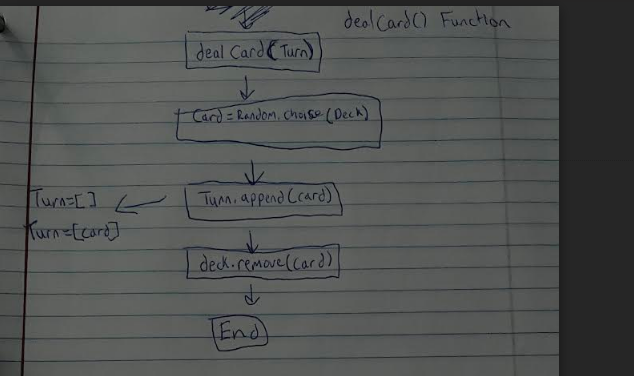 dealCard() Function
deal Card(Turn)
Card = Random.choise(Deck)
Turn.append(card)
Turn=[]
Turn=[card]
deck.remove(card)
End